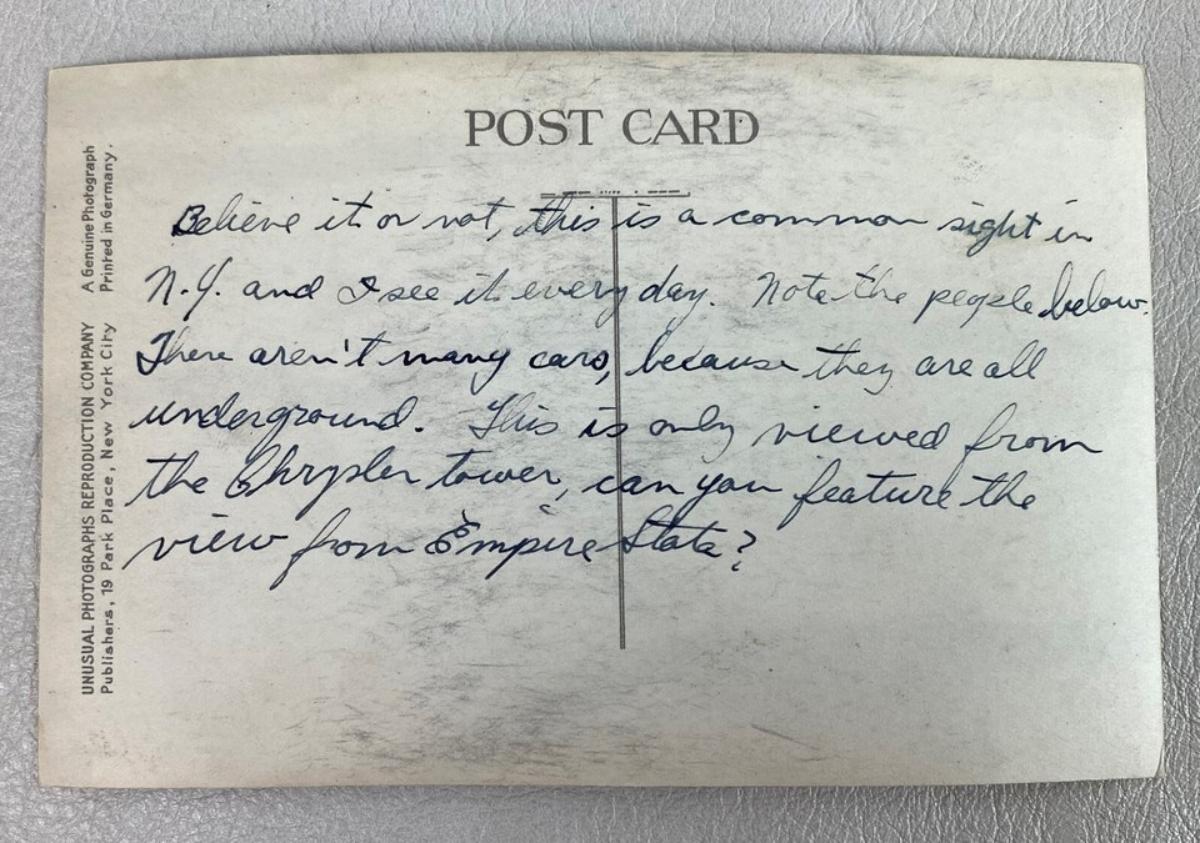 POST CARD
Believe it or not, this is a common sight in
N.Y. and I see it every day. Note the people below.
There aren't many cars, because they are all
underground. This is only viewed from
the Chrysler tower, can you feature the
view from Empire State?
A Genuine Photograph
Printed in Germany.
UNUSUAL PHOTOGRAPHS REPRODUCTION COMPANY
Publishers, 19 Park Place, New York City